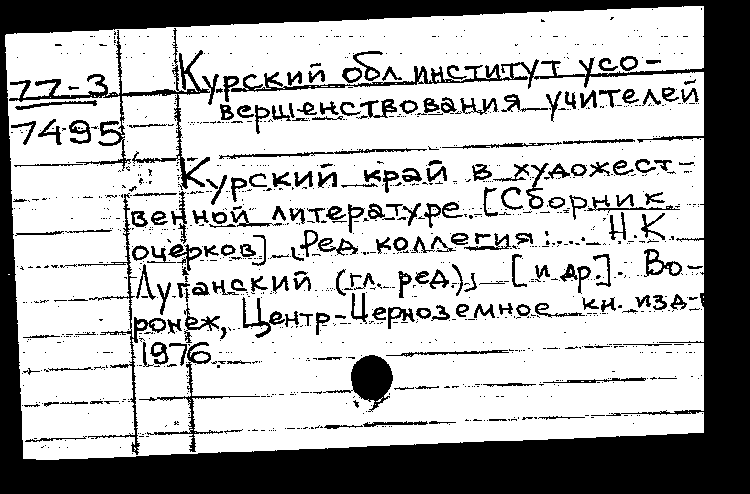 77-3
7495
Курский обл. институт усо-
вершенствования учителей
Курский край в художест-
венной литературе. [Сборник
очерков]. Ред. коллегия: ... Н.К.
Луганский (гл. ред.), [и др.]. Во-
ронеж, Центр-Черноземное кн. изд-
1976.